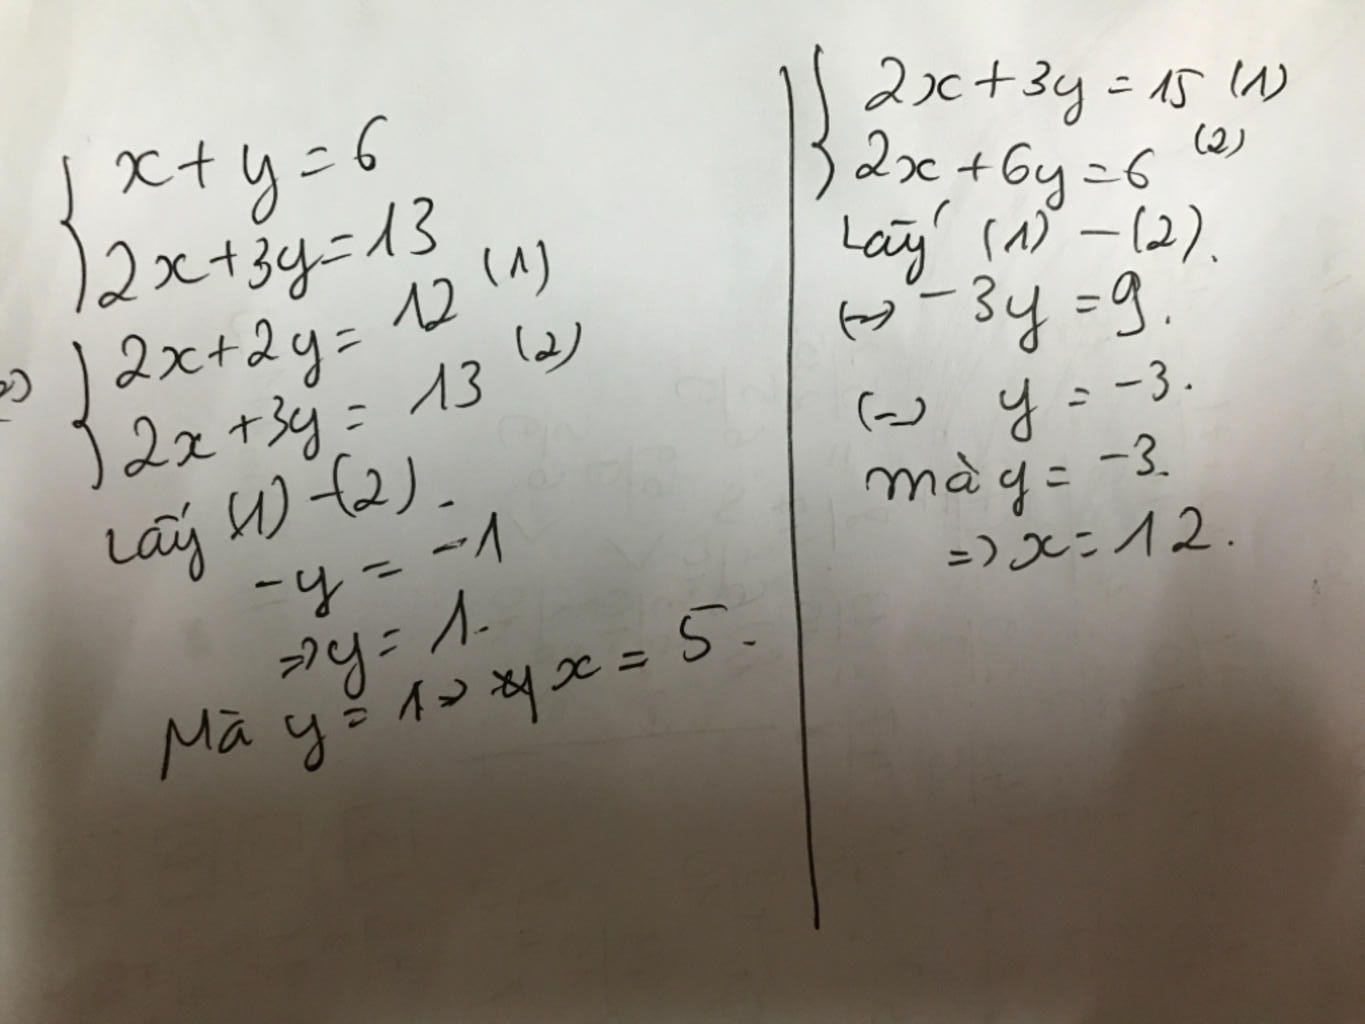 x + y = 6
2x + 3y = 13
2x + 2y = 12 (1)
2x + 3y = 13 (2)
Lấy (1) - (2).
-y = -1
=> y = 1.
Mà y = 1 => x = 5.
2x + 3y = 15 (1)
2x + 6y = 6 (2)
Lấy (1) - (2).
(=) -3y = 9.
(=) y = -3.
mà y = -3.
=> x = 12.